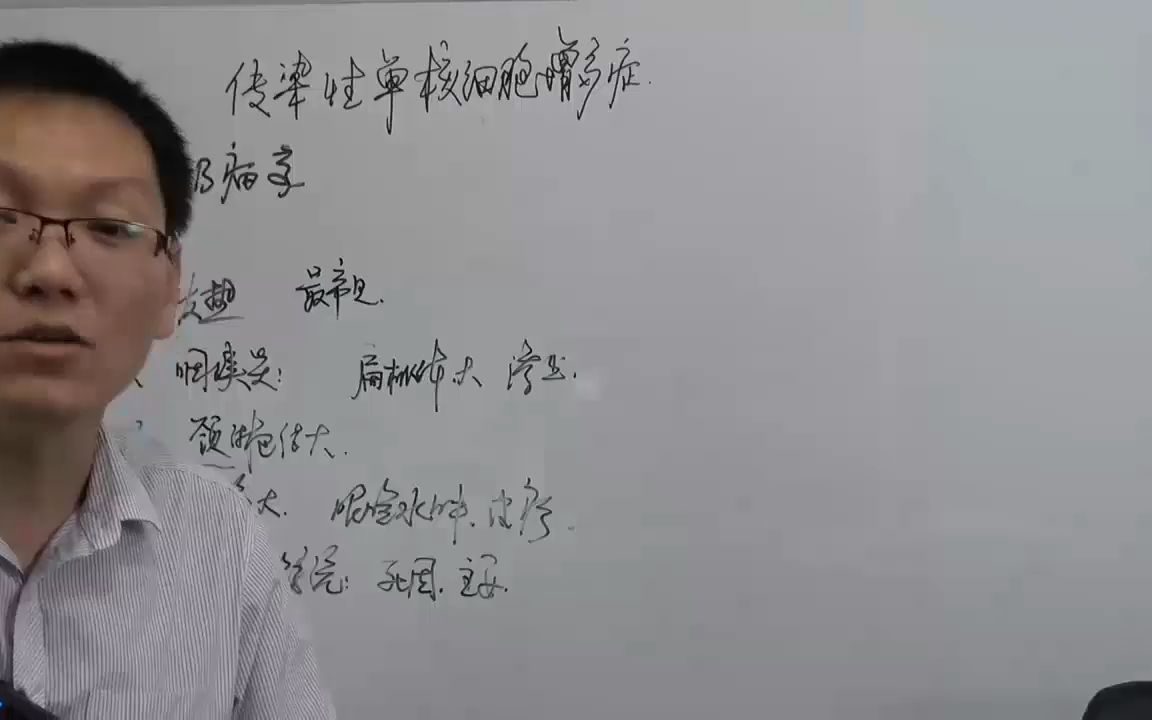 传染性单核细胞增多症.
B病毒
发热 最常见.
咽峡炎: 扁桃体大 渗出.
颈淋巴结大.
大. 眼睑水肿. 皮疹.
系统: 死因. 主要.